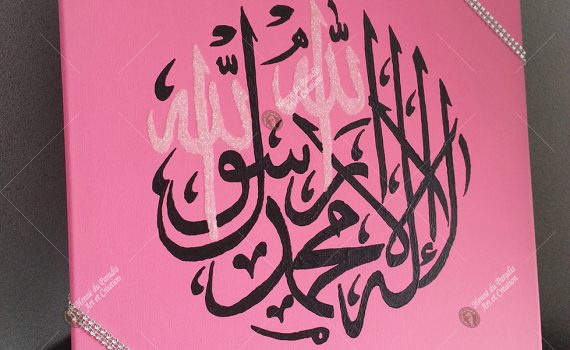 لا إله إلا الله محمد رسول الله
Henné du Paradis
Art et Création
Henné du Paradis
Art et Création
Henné du Paradis
Art et Création
Henné du Paradis
Art et Création